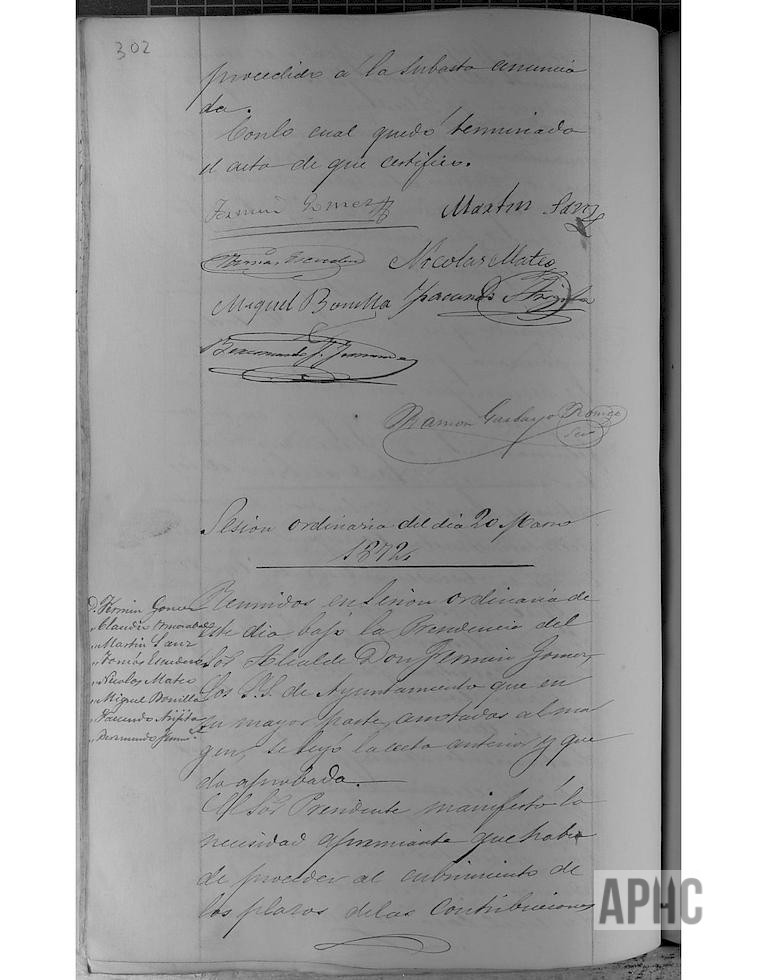 302
procedido á la Subasta anuncia
da.
Con lo cual quedó terminado
el acto de que certifico.
Fermin Gomez Martin Sanz
Tomas Escudero Nicolas Mateo
Miguel Bonilla Facundo Arijita
Ramon Garbayo
Secº
Sesion ordinaria del dia 20 Marzo
1872.
D. Fermin Gomez
" Claudio
" Martin Sanz
" Tomás Escudero
" Nicolas Mateo
" Miguel Bonilla
" Facundo Arijita
Reunidos en Sesion ordinaria de
este dia bajo la Presidencia del
Sor. Alcalde Don Fermin Gomez,
los S.S. de Ayuntamiento que en
su mayor parte, anotados al mar
gen, se leyó la acta anterior y que
do aprobada.
El Sor. Presidente manifestó la
necesidad apremiante que habia
de proceder al cubrimiento de
los plazos de las Contribuciones
APHC